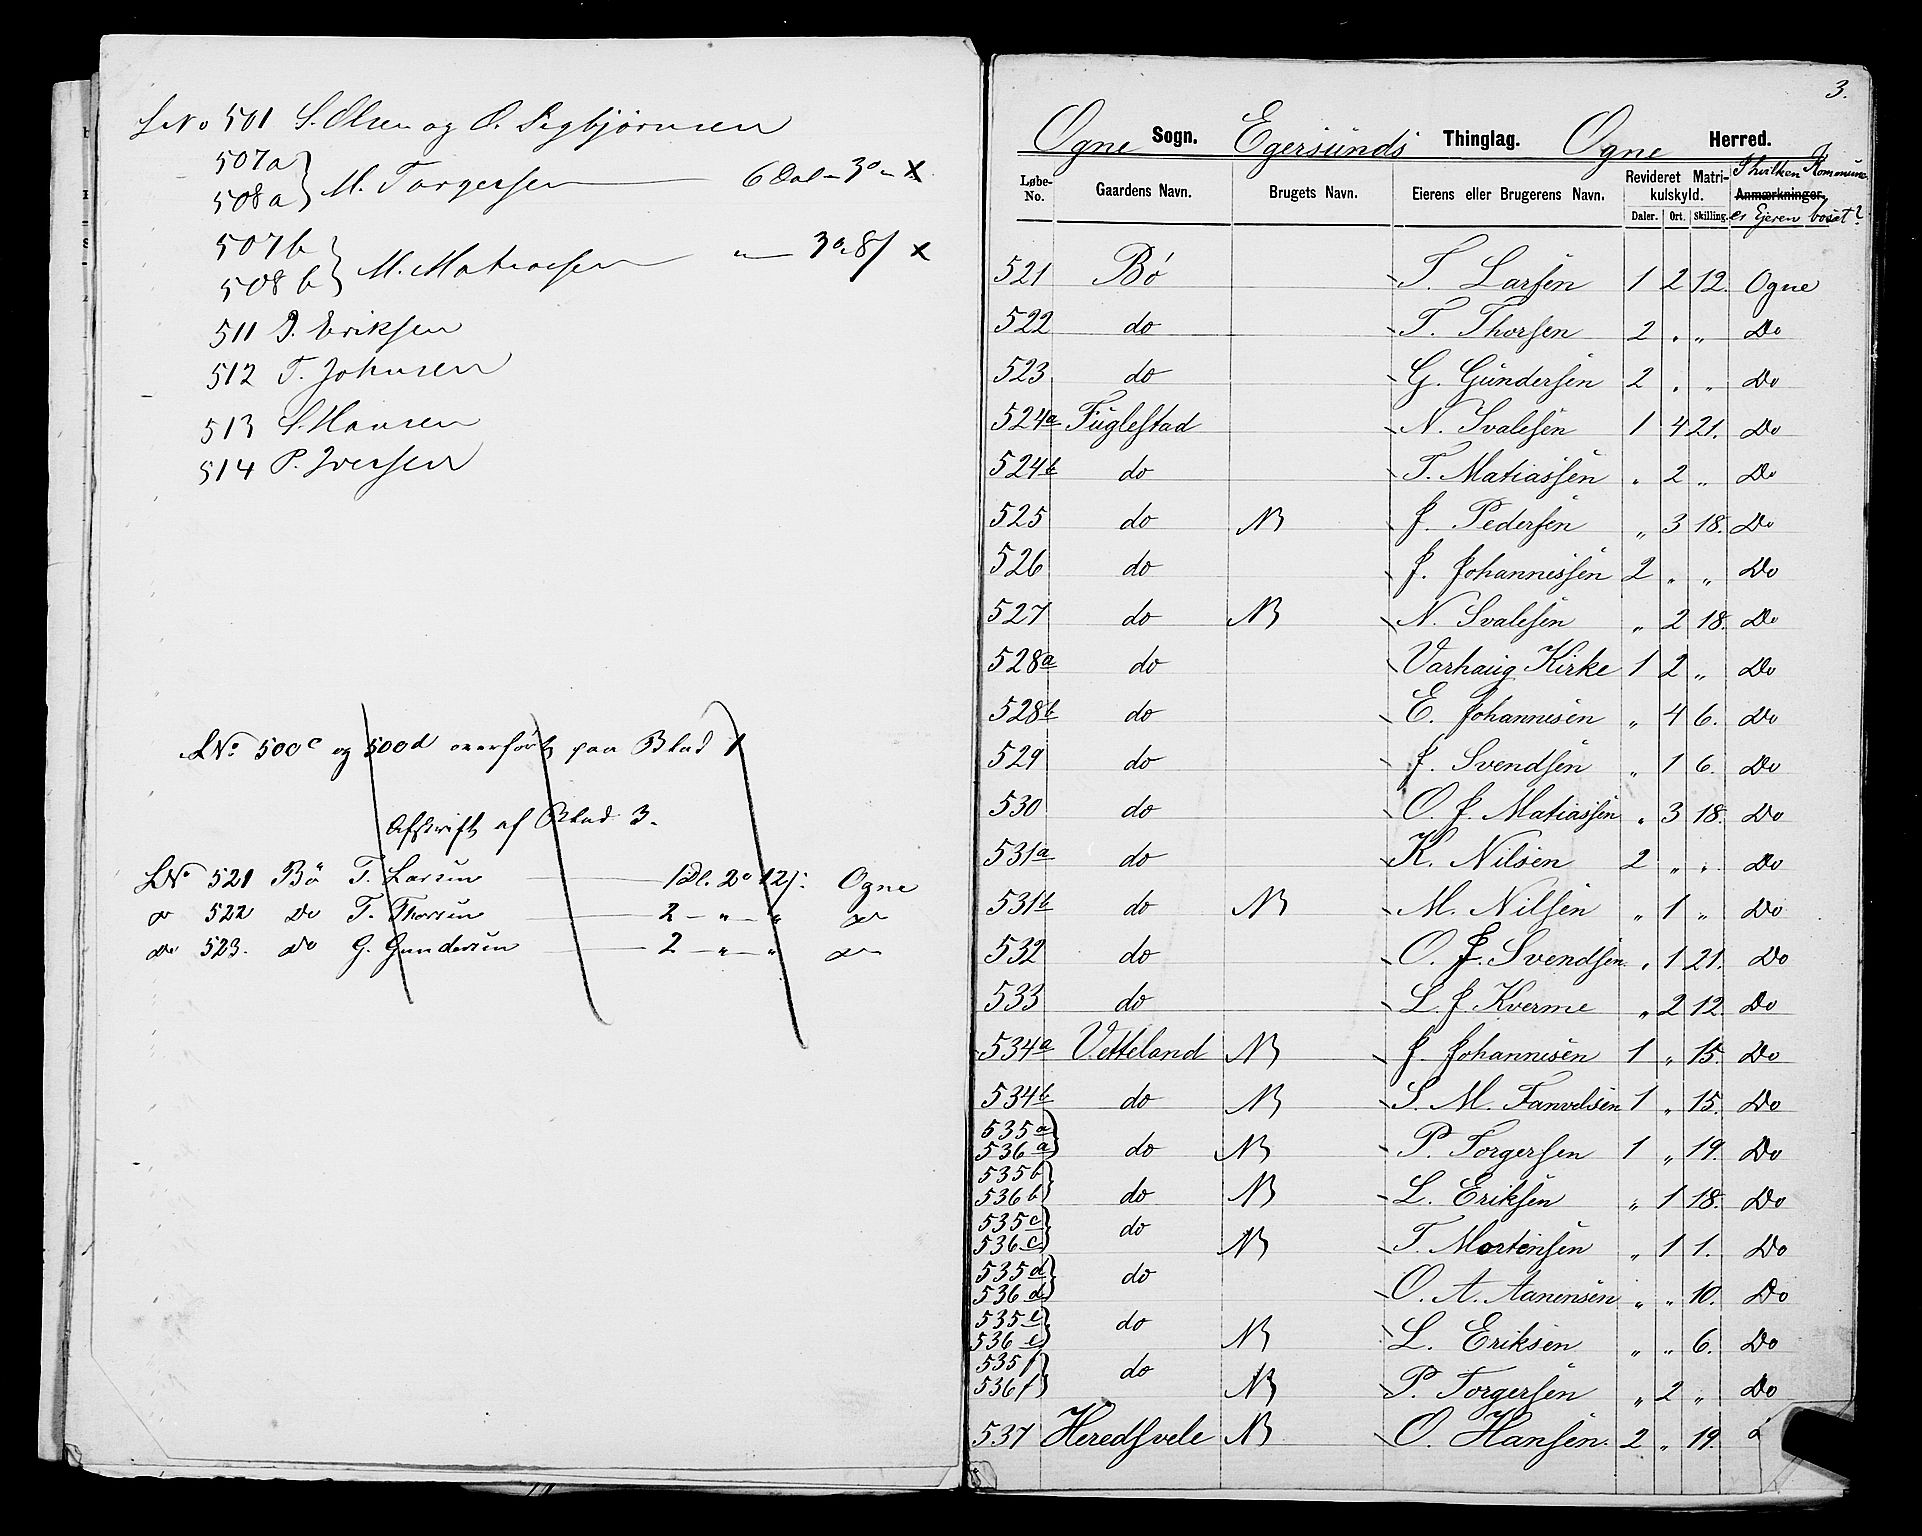 LNo 501 S. Olsen og O. Sigbjørnsen
507a
508a } M. Torgersen — 6 Dal - 3 o - " X
507b
508b } M. Matiasen " — 3 o. 8 f X
511 P. Eriksen
512 T. Johnsen
513 S. Hansen
514 P. Iversen
LNo 500c og 500d overført paa Blad 1
Afskrift af Blad 3.
LNo 521 Bö T. Larsen — 1 Dl. 2 o 12 f: Ogne
Do 522 Do T. Thorsen — 2 - " - " Do
Do 523. Do G. Gundersen — 2 - " - " Do
3.
Ogne Sogn. Egersunds Thinglag. Ogne Herred.
Løbe-No. Gaardens Navn. Brugets Navn. Eierens eller Brugerens Navn. Revideret Matrikulskyld. Daler. Ort. Skilling. Anmærkninger. I hvilken Kommune er Ejeren bosat?
521 Bö T. Larsen 1 2 12. Ogne
522 do T. Thorsen 2 " " Do
523 do G. Gundersen 2 " " Do
524a Fuglestad N. Svalesen 1 4 21. Do
524b do T. Matiassen " 2 " Do
525 do NB J. Pedersen " 3 18. Do
526 do J. Johannessen 2 " " Do
527 do NB N. Svalesen " 2 18. Do
528a do Varhaug Kirke 1 2 " Do
528b do E. Johannesen " 4 6. Do
529 do J. Svendsen " 1 6. Do
530 do O. J. Matiassen " 3 18. Do
531a do K. Nilsen 2 " " Do
531b do NB M. Nilsen " 1 " Do
532 do O. J. Svendsen " 1 21. Do
533 do L. J. Kverme " 2 12. Do
534a Vetteland NB J. Johannesen 1 " 15. Do
534b do NB S. M. Tanvelsen 1 " 15. Do
535a
536a } do NB P. Torgersen 1 " 19. Do
535b
536b } do NB L. Eriksen " 1 18. Do
535c
536c } do NB T. Mortensen " 1 1. Do
535d
536d } do O. A. Aanensen " " 10. Do
535e
536e } do NB L. Eriksen " " 6. Do
535f
536f } do NB P. Torgersen " 2 " Do
537 Heredsvele NB O. Hansen. 2 " 19.